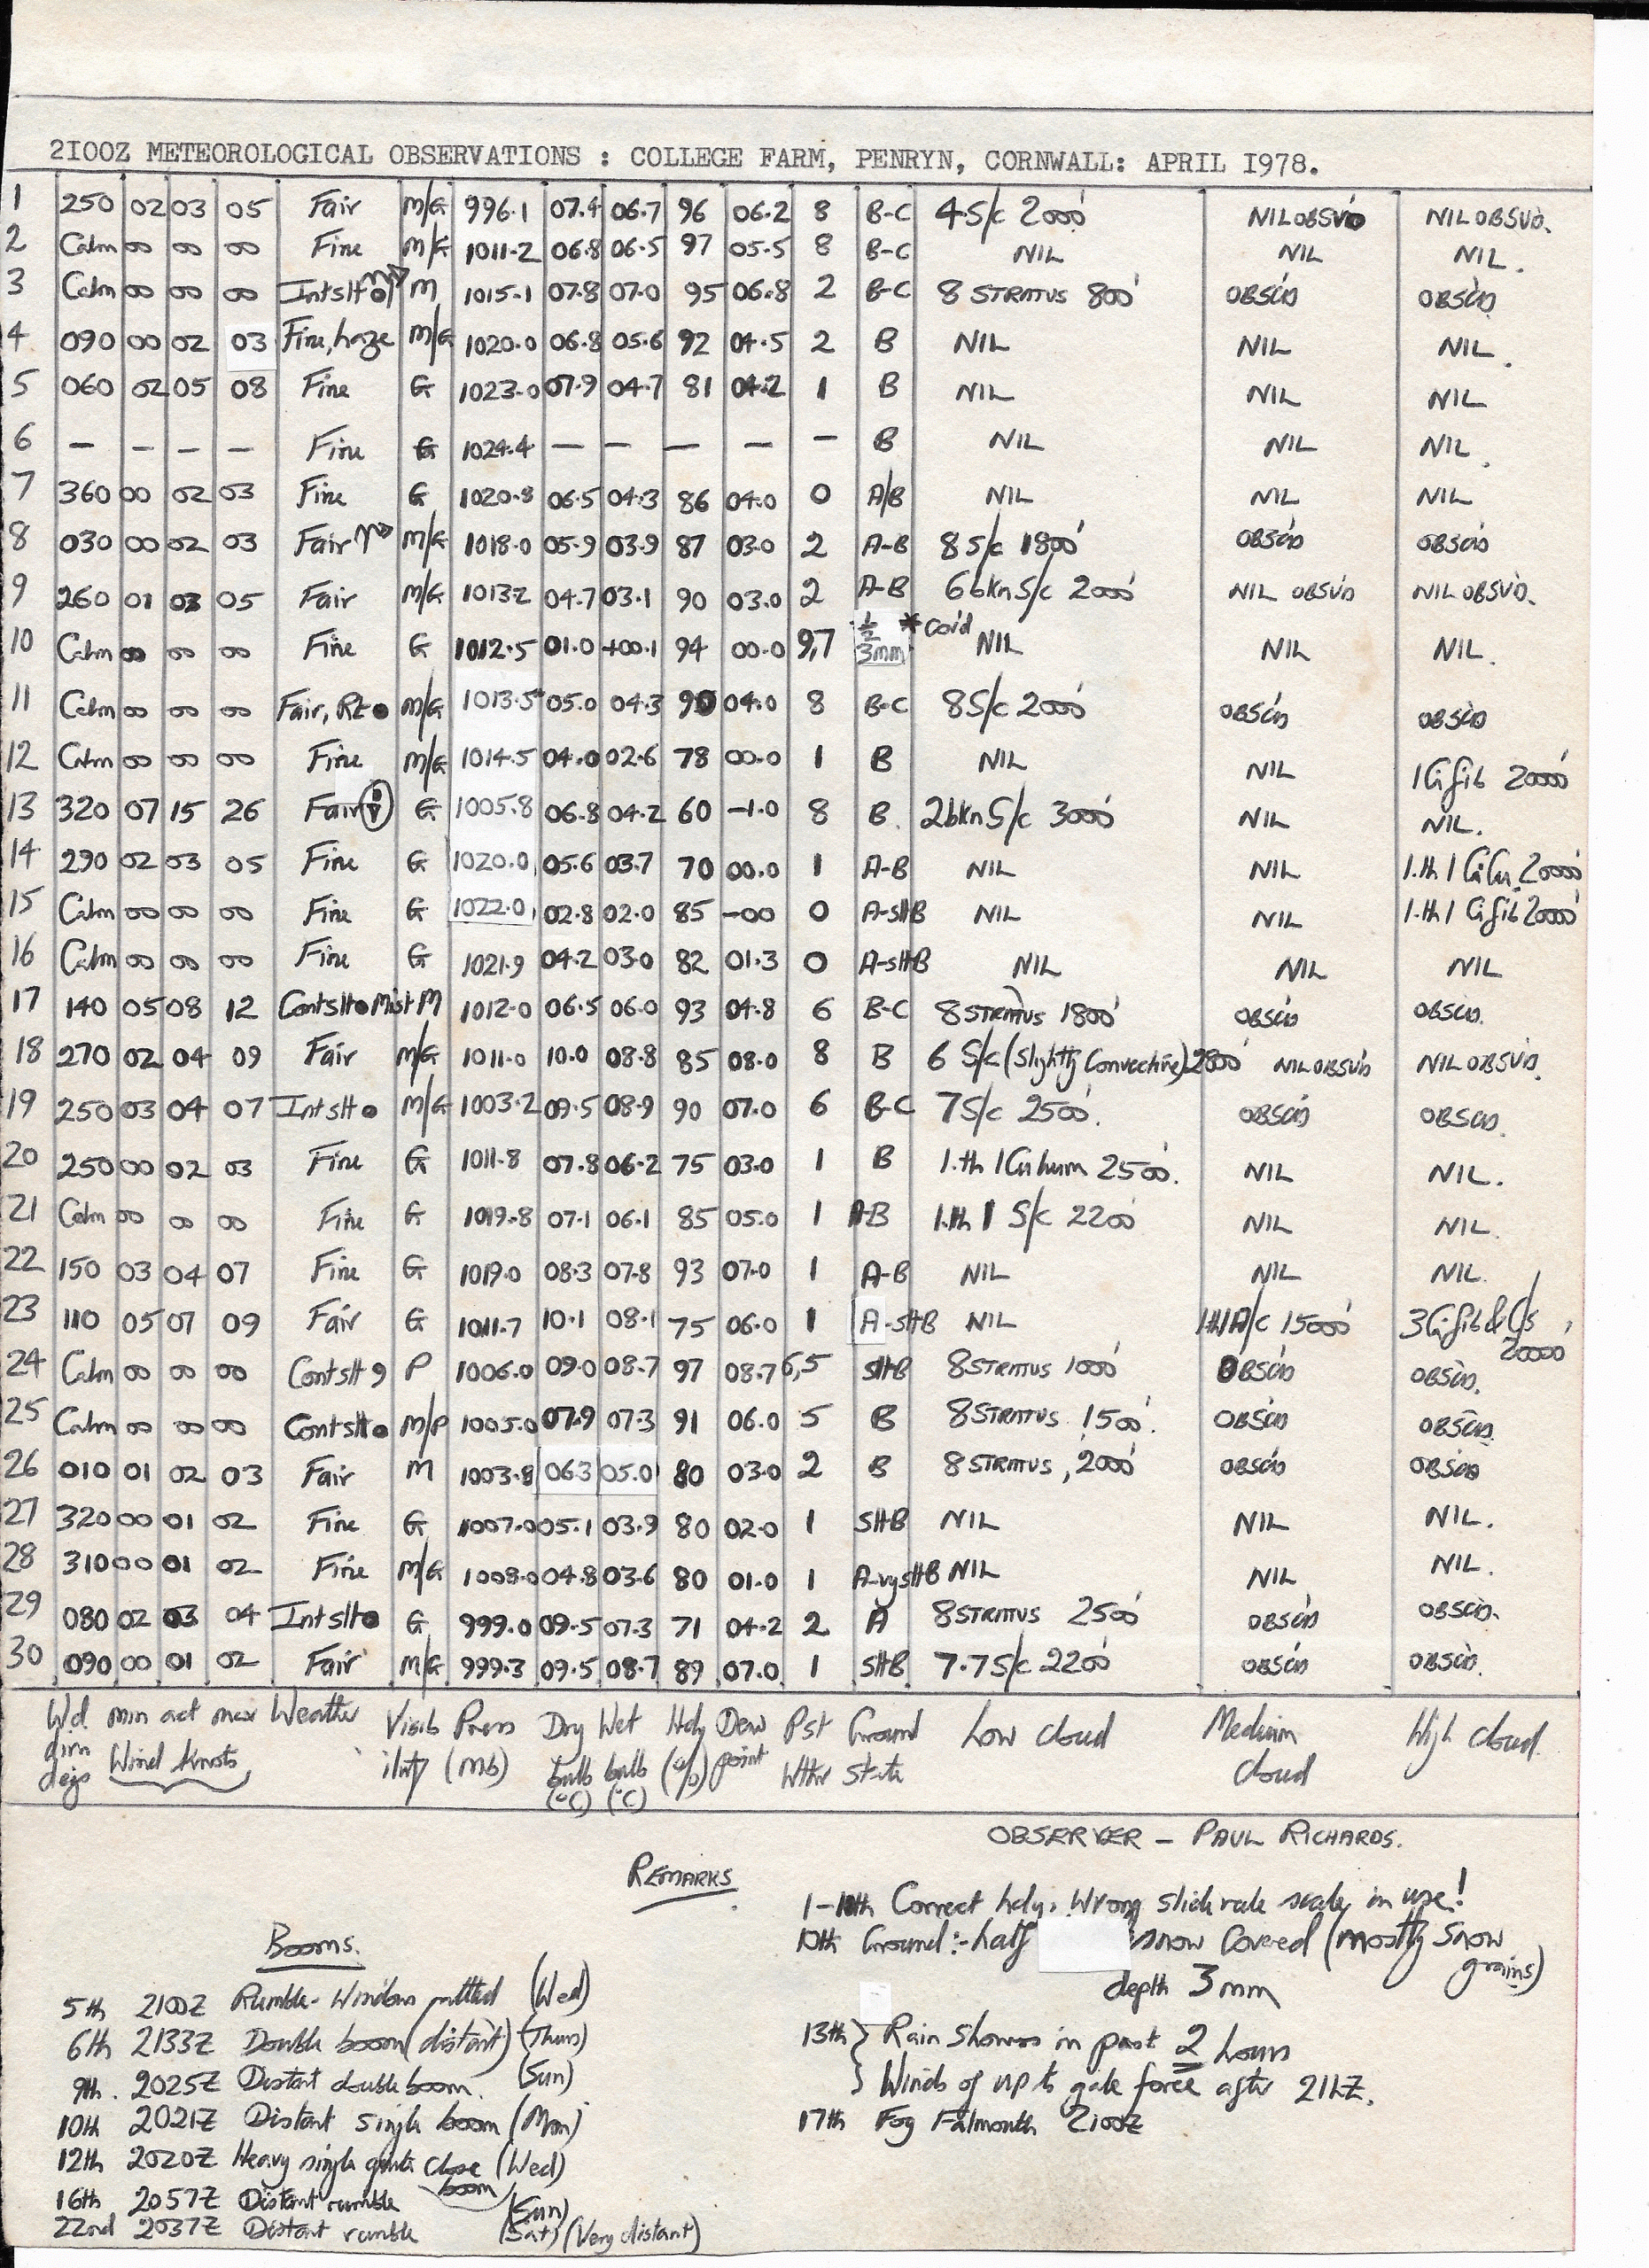 2I00Z METEOROLOGICAL OBSERVATIONS : COLLEGE FARM, PENRYN, CORNWALL: APRIL I978.
1 250 02 03 05 Fair M/G 996.1 07.4 06.7 96 06.2 8 B-C 4 S/c 2000' NIL OBSVD NIL OBSVD.
2 Calm 00 00 00 Fine M/G 1011.2 06.8 06.5 97 05.5 8 B-C NIL NIL NIL.
3 Calm 00 00 00 Int slt M 1015.1 07.8 07.0 95 06.8 2 B-C 8 STRATUS 800' OBSCD OBSCD
4 090 00 02 03 Fine, haze M/G 1020.0 06.8 05.6 92 04.5 2 B NIL NIL NIL.
5 060 02 05 08 Fine G 1023.0 07.9 04.7 81 04.2 1 B NIL NIL NIL
6 — — — — Fine G 1024.4 — — — — — B NIL NIL NIL.
7 360 00 02 03 Fine G 1020.8 06.5 04.3 86 04.0 0 A/B NIL NIL NIL
8 030 00 02 03 Fair M/G 1018.0 05.9 03.9 87 03.0 2 A-B 8 S/c 1800' OBSCD OBSCD
9 260 01 03 05 Fair M/G 1013.2 04.7 03.1 90 03.0 2 A-B 6 bkn S/c 2000' NIL OBSVD NIL OBSVD.
10 Calm 00 00 00 Fine G 1012.5 01.0 +00.1 94 00.0 9,7 1/2 3mm * Cov'd NIL NIL NIL.
11 Calm 00 00 00 Fair, Rt ● M/G 1013.5 05.0 04.3 90 04.0 8 B-C 8 S/c 2000' OBSCD OBSCD
12 Calm 00 00 00 Fine M/G 1014.5 04.0 02.6 78 00.0 1 B NIL NIL 1 Ci fib 20000'
13 320 07 15 26 Fair G 1005.8 06.8 04.2 60 -1.0 8 B. 2 bkn S/c 3000' NIL NIL.
14 290 02 03 05 Fine G 1020.0 05.6 03.7 70 00.0 1 A-B NIL NIL 1.th 1 CiCu. 20000'
15 Calm 00 00 00 Fine G 1022.0 02.8 02.0 85 -00 0 A-SHB NIL NIL 1.th 1 Ci fib 20000'
16 Calm 00 00 00 Fine G 1021.9 04.2 03.0 82 01.3 0 A-SHB NIL NIL NIL
17 140 05 08 12 Cont slt ● Mist M 1012.0 06.5 06.0 93 04.8 6 B-C 8 STRATUS 1800' OBSCD OBSCD.
18 270 02 04 09 Fair M/G 1011.0 10.0 08.8 85 08.0 8 B 6 S/c (Slightly Convective) 2800' NIL OBSVD NIL OBSVD.
19 250 03 04 07 Int slt ● M/G 1003.2 09.5 08.9 90 07.0 6 B-C 7 S/c 2500'. OBSCD OBSCD.
20 250 00 02 03 Fine G 1011.8 07.8 06.2 75 03.0 1 B 1.th 1 Cu hum 2500'. NIL NIL.
21 Calm 00 00 00 Fine G 1019.8 07.1 06.1 85 05.0 1 A-B 1.th 1 S/c 2200' NIL NIL.
22 150 03 04 07 Fine G 1019.0 08.3 07.8 93 07.0 1 A-B NIL NIL NIL.
23 110 05 07 09 Fair G 1011.7 10.1 08.1 75 06.0 1 A-SHB NIL 1.th 1 A/c 15000' 3 Ci fib & Cs 20000'
24 Calm 00 00 00 Cont slt 9 P 1006.0 09.0 08.7 97 08.7 6,5 SHB 8 STRATUS 1000' OBSCD OBSCD.
25 Calm 00 00 00 Cont slt ● M/P 1005.0 07.9 07.3 91 06.0 5 B 8 STRATUS 1500'. OBSCD OBSCD.
26 010 01 02 03 Fair M 1003.8 06.3 05.0 80 03.0 2 B 8 STRATUS, 2000' OBSCD OBSCD
27 320 00 01 02 Fine G 1007.0 05.1 03.9 80 02.0 1 SHB NIL NIL NIL.
28 310 00 01 02 Fine M/G 1008.0 04.8 03.6 80 01.0 1 A-vySHB NIL NIL NIL.
29 080 02 03 04 Int slt ● G 999.0 09.5 07.3 71 04.2 2 A 8 STRATUS 2500' OBSCD OBSCD.
30 090 00 01 02 Fair M/G 999.3 09.5 08.7 89 07.0 1 SHB 7.7 S/c 2200' OBSCD OBSCD.
Wd min act max Weather Visib Press Dry Wet Hdy Dew Pst Ground Low Cloud Medium High Cloud.
dirn Wind Knots ility (mb) bulb bulb (%) point Wthr State Cloud
degs (°C) (°C)
OBSERVER – PAUL RICHARDS.
REMARKS
1–10th Correct hdy. Wrong slide rule scale in use!
10th Ground:- half snow Covered (mostly Snow grains)
depth 3mm
13th } Rain Showers in past 2 hours
Winds of up to gale force after 21hZ.
17th Fog Falmouth 2100Z
Booms.
5th 2100Z Rumble - Windows rattled (Wed)
6th 2133Z Double boom (distant) (Thurs)
9th. 2025Z Distant double boom. (Sun)
10th 2021Z Distant Single boom (Mon)
12th 2020Z Heavy single quite close boom (Wed)
16th 2057Z Distant rumble (Sun)
22nd 2037Z Distant rumble (Sat) (Very distant)